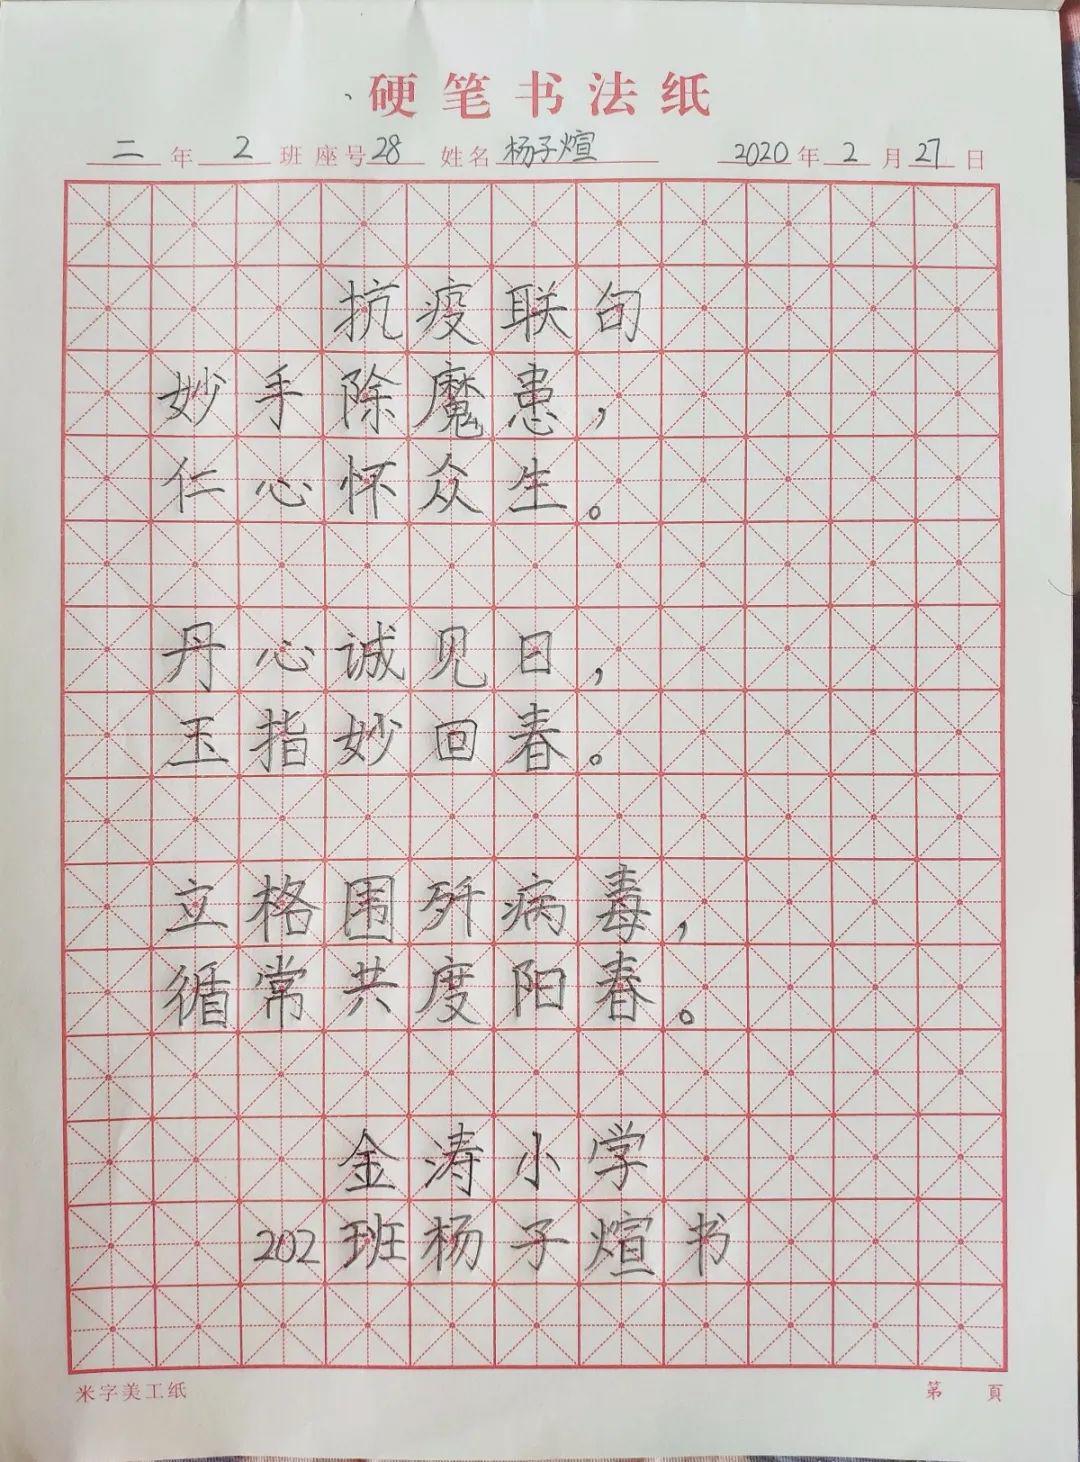 硬笔书法纸
二年2班座号28 姓名杨子煊 2020年2月27日
抗疫联句
妙手除魔患，
仁心怀众生。
丹心诚见日，
玉指妙回春。
立格围歼病毒，
循常共度阳春。
金涛小学
202班杨子煊书
米字美工纸 第 頁